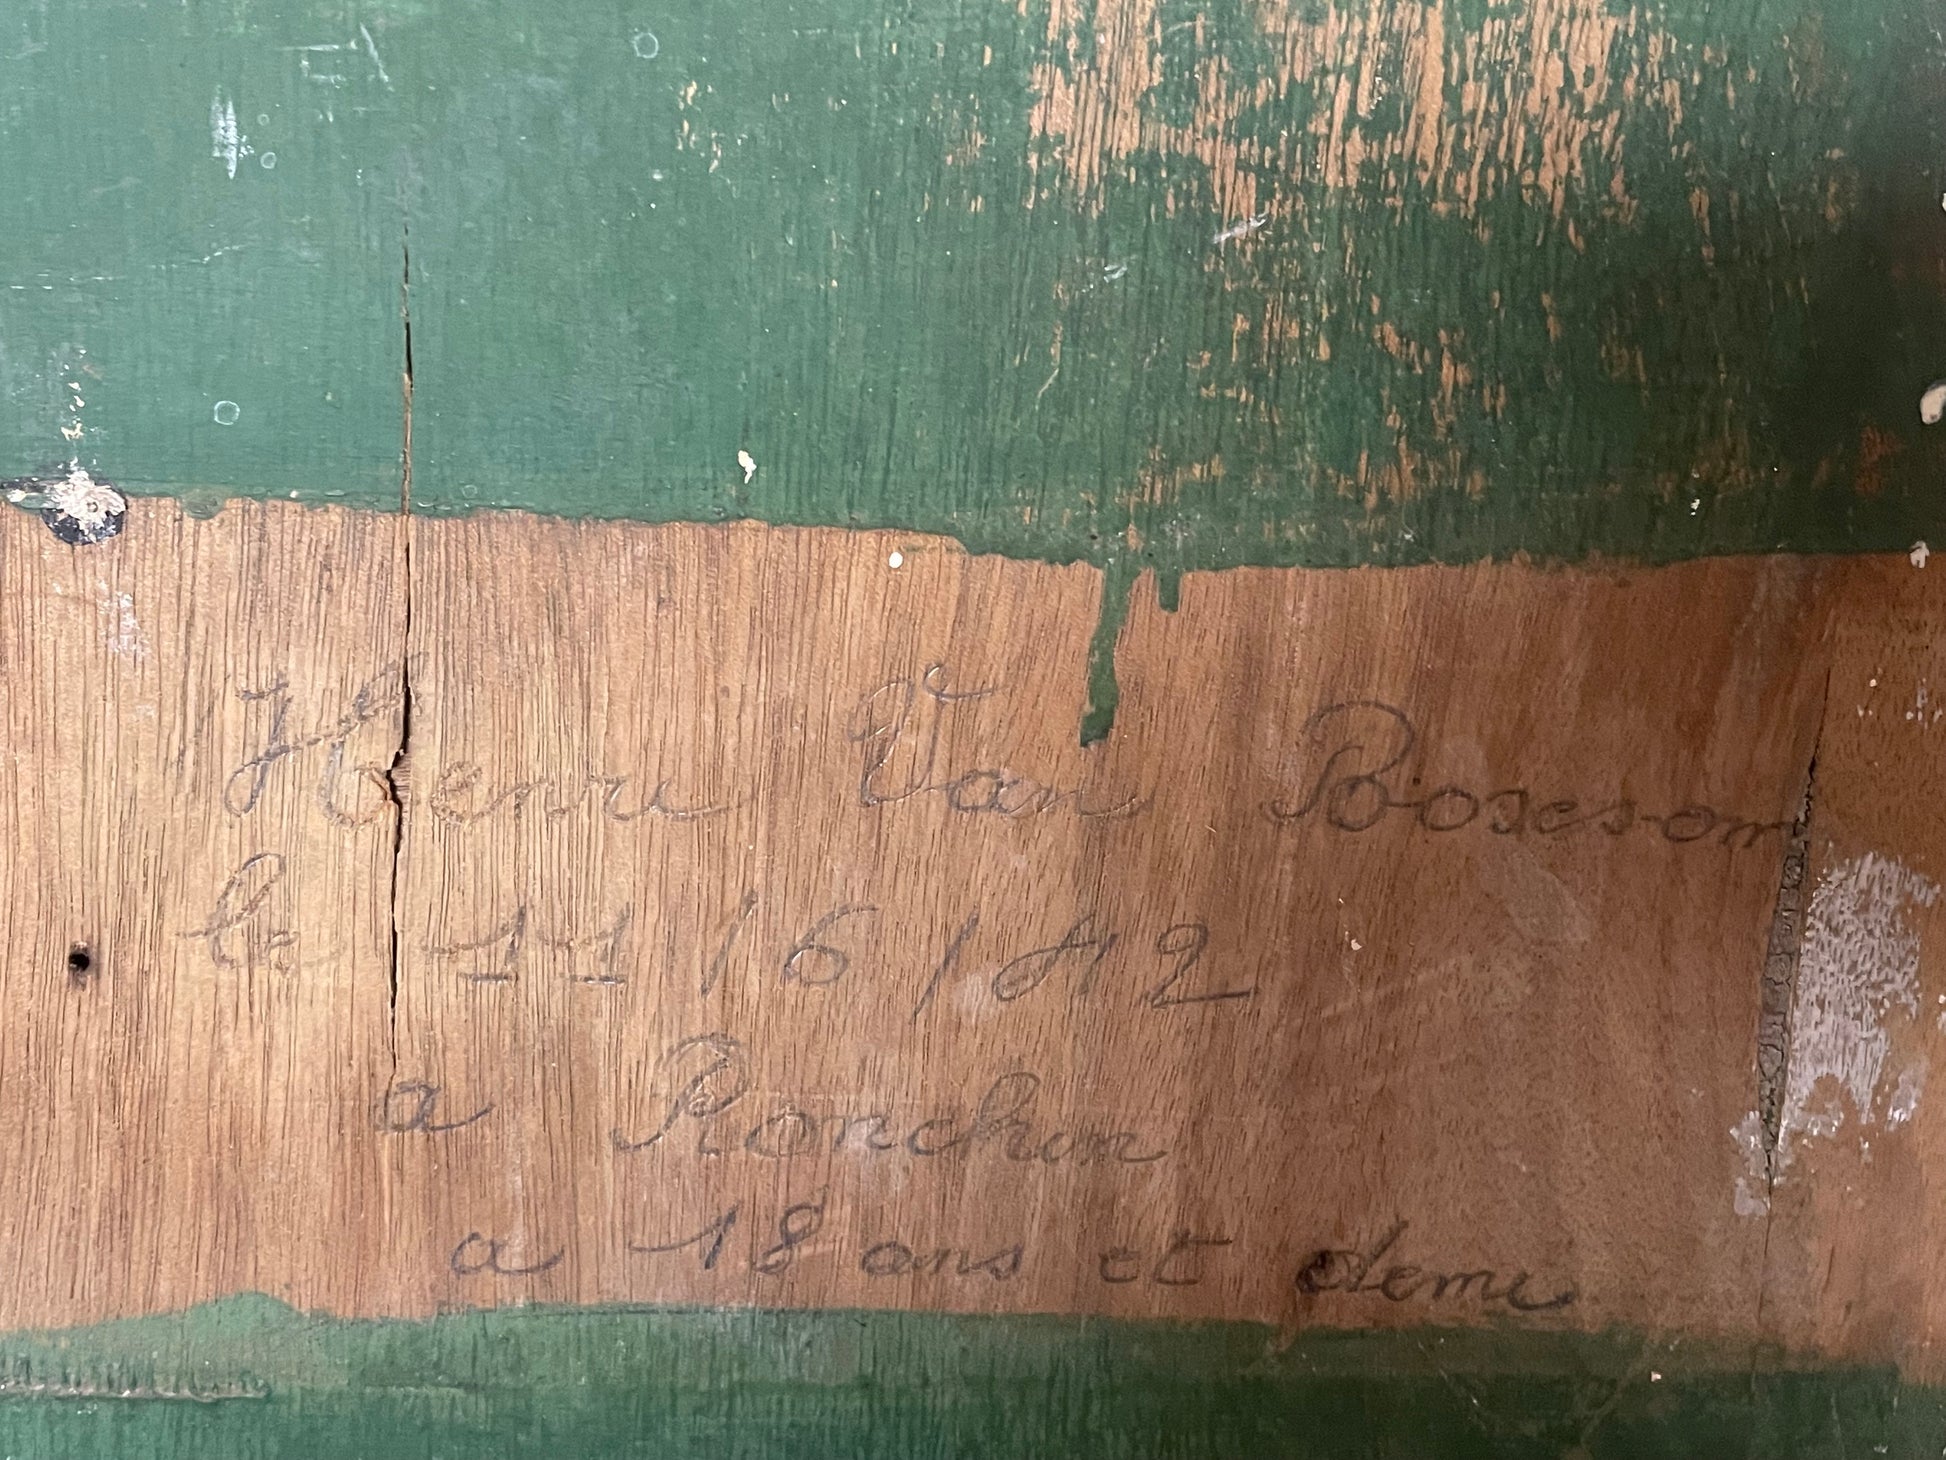 Henri Van Boxeson
le 11/6/42
a Ronchin
a 18 ans et demi